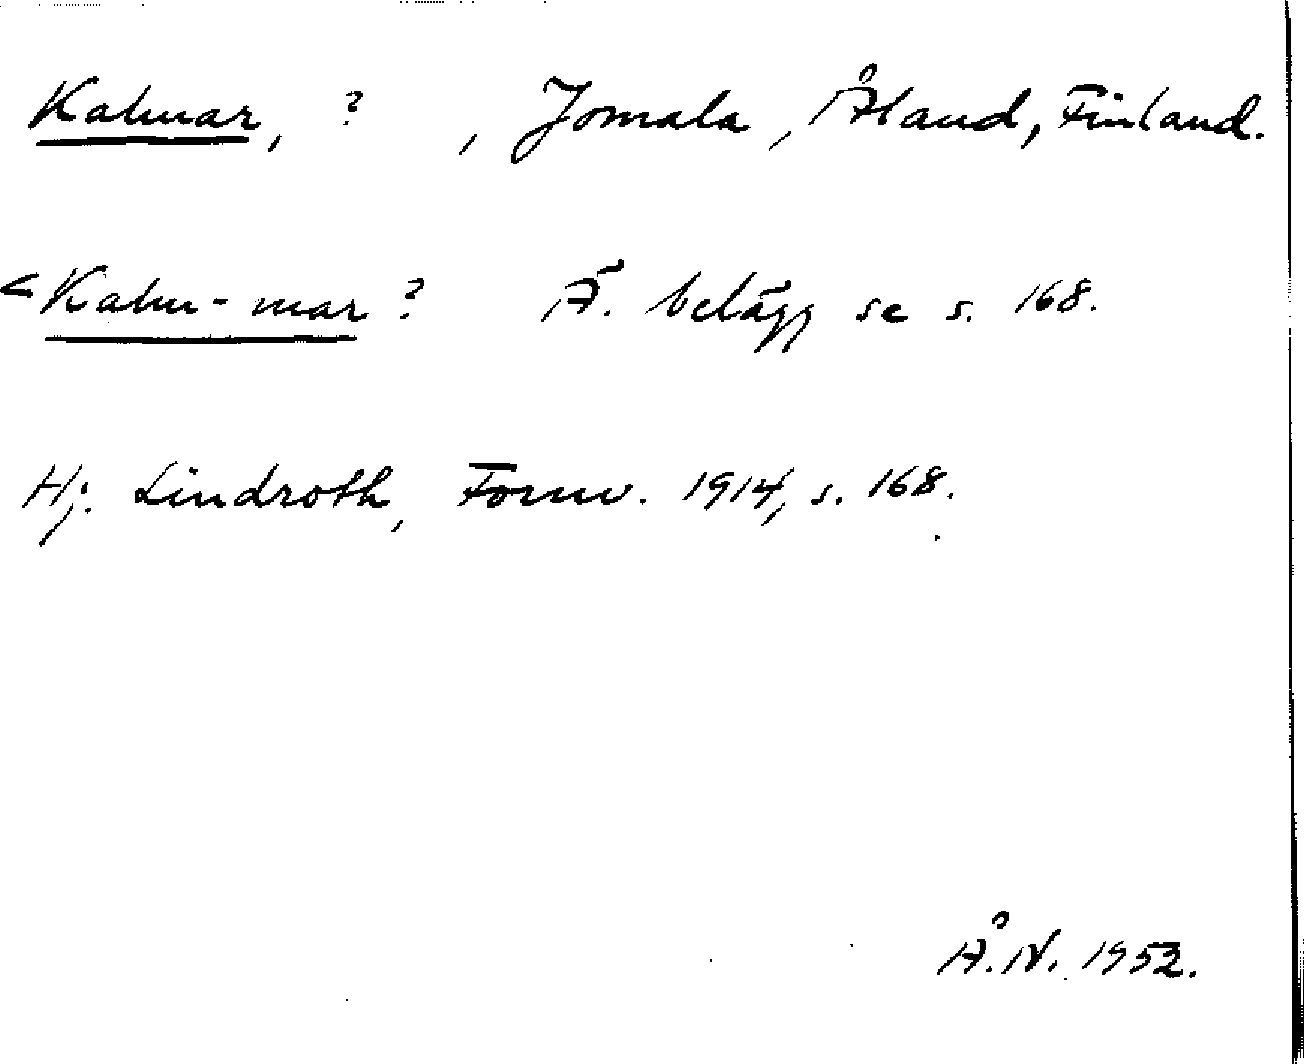 Kalmar, ? , Jomala, Åland, Finland.
< Kalm-mar ? Ä. belägg se s. 168.
Hj. Lindroth, Fornv. 1914, s. 168.
Å.N. 1952.